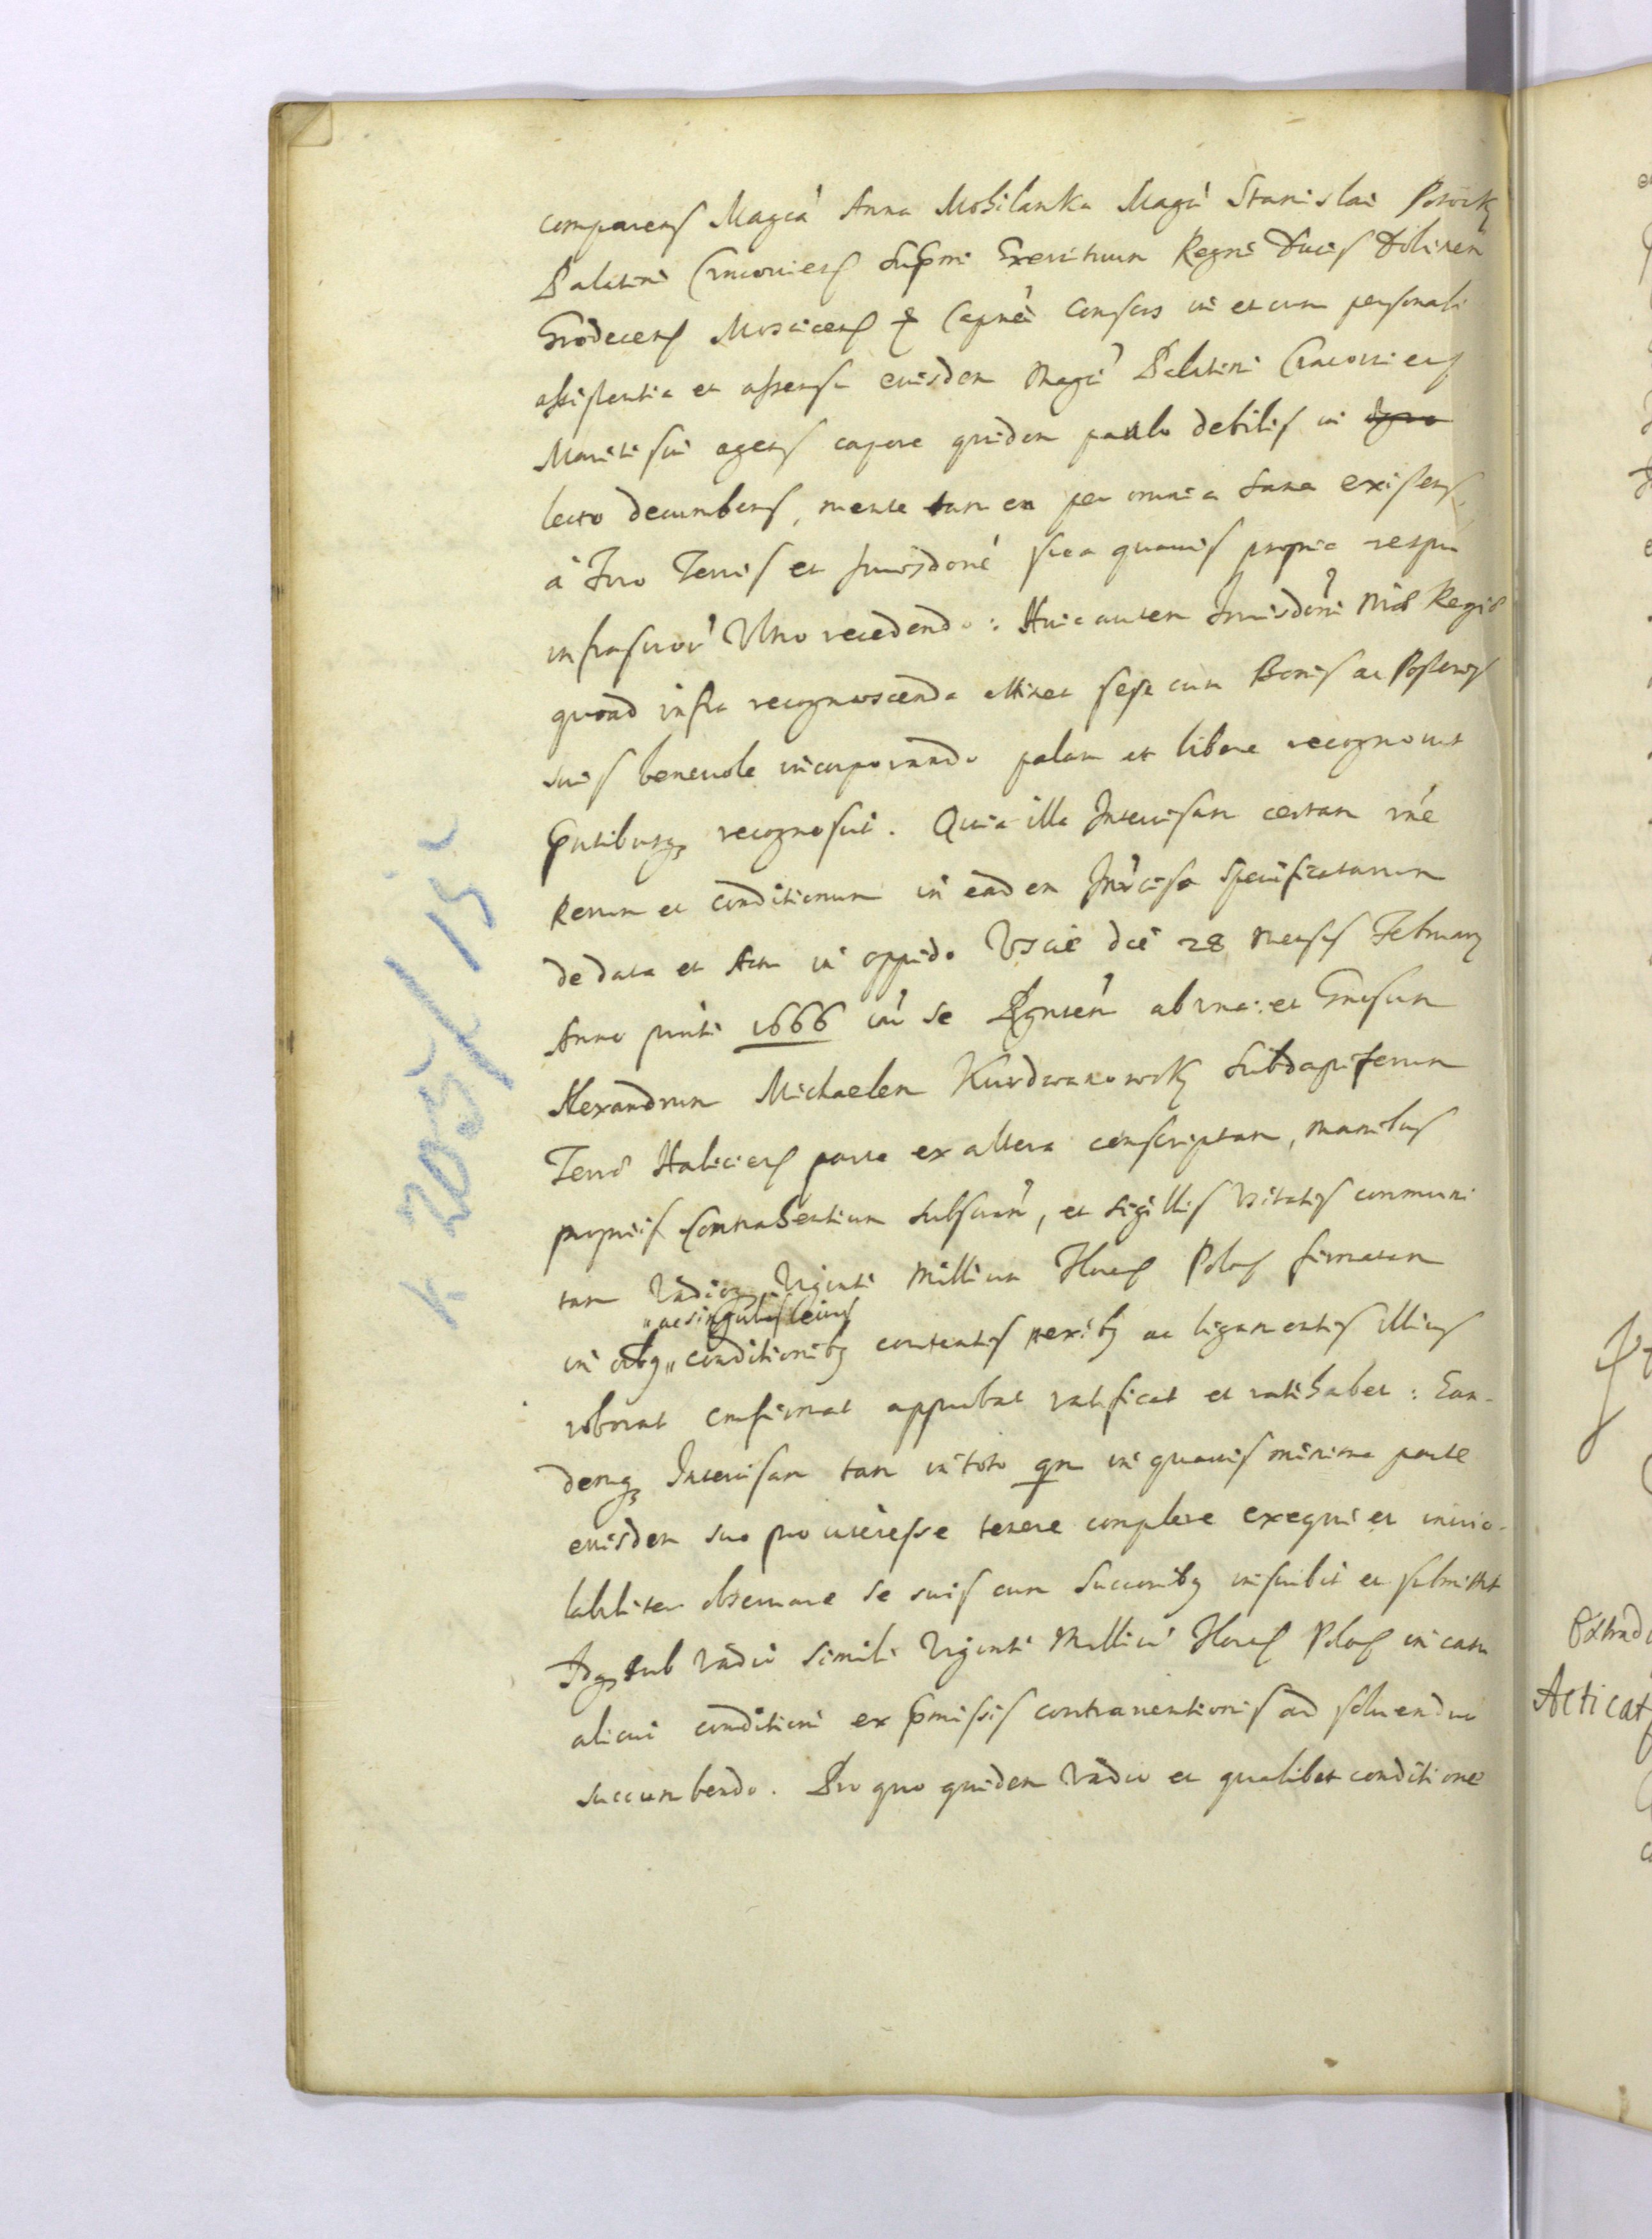 comparens Magca Anna Mohilanka Magci Stanislai Potocky
Palatini Cracovien Supmi Exercituum Regni Ducis Dolinen
Grodecens Mosciscens & Capnei Consors in et cum personali
assistentia et assensu eiusdem Magci Palatini Cracoviens
Mariti sui agens corpore quidem paulo debilis in
lecto decumbens, mente tamen per omnia sana existens,
à Foro Terris et Jurisdone sua quavis propria respu
infrascror Vltro recedendo: Huic autem Jurisdoni Niae Regiae
quoad infra recognoscenda attinet sese cum Bonis ac Posteris
suis benevole incorporando palam et libere recognovit
Pntibusq recognoscit. Quia illa Intercisam certam rne
Rerum et conditionum in eadem Intercisa specificatarum
de data et Actu in oppido Vscie die 28 mensis February
Anno pnti 1666 inr se Pgnten ab una: et Gnosum
Alexandrum Michaelem Kurdwanowsky Subdapiferum
Terrae Haliciens parte ex altera conscriptam, manibus
propriis Contrahentium Subscram, et sigillis vsitatis communi
tam Vadioq Viginti Millium Floren Polon firmatam
"ac singulis eius
in oibg" conditionibg contentis nexibg ac ligamentis illius
roborat confirmat approbat ratificat et ratihabet: Ean-
demq Intercisam tam in toto qm in quavis minima parte
eiusdem suo pro interesse tenere complere exequi et invio-
labiliter observare se suis cum Succoribg inscribit et submittit
Idq sub vadio simili Viginti Milliu Floren Polon in casu
alicui conditioni ex Pmissis contraventionis ad solvendu
succumbendo. Pro quo quidem vadio et qualibet conditione
K 205/15
Extrad
Acticat